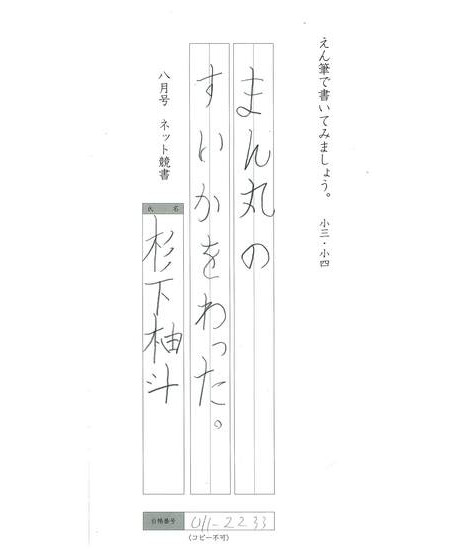 えん筆で書いてみましょう。 小三・小四
まん丸の
すいかをわった。
八月号 ネット競書
氏名
杉下柚斗
会員番号
011-2233
(コピー不可)